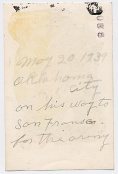 May 20 1939
Oklahoma
City
on his way to
San Fransico
for the army